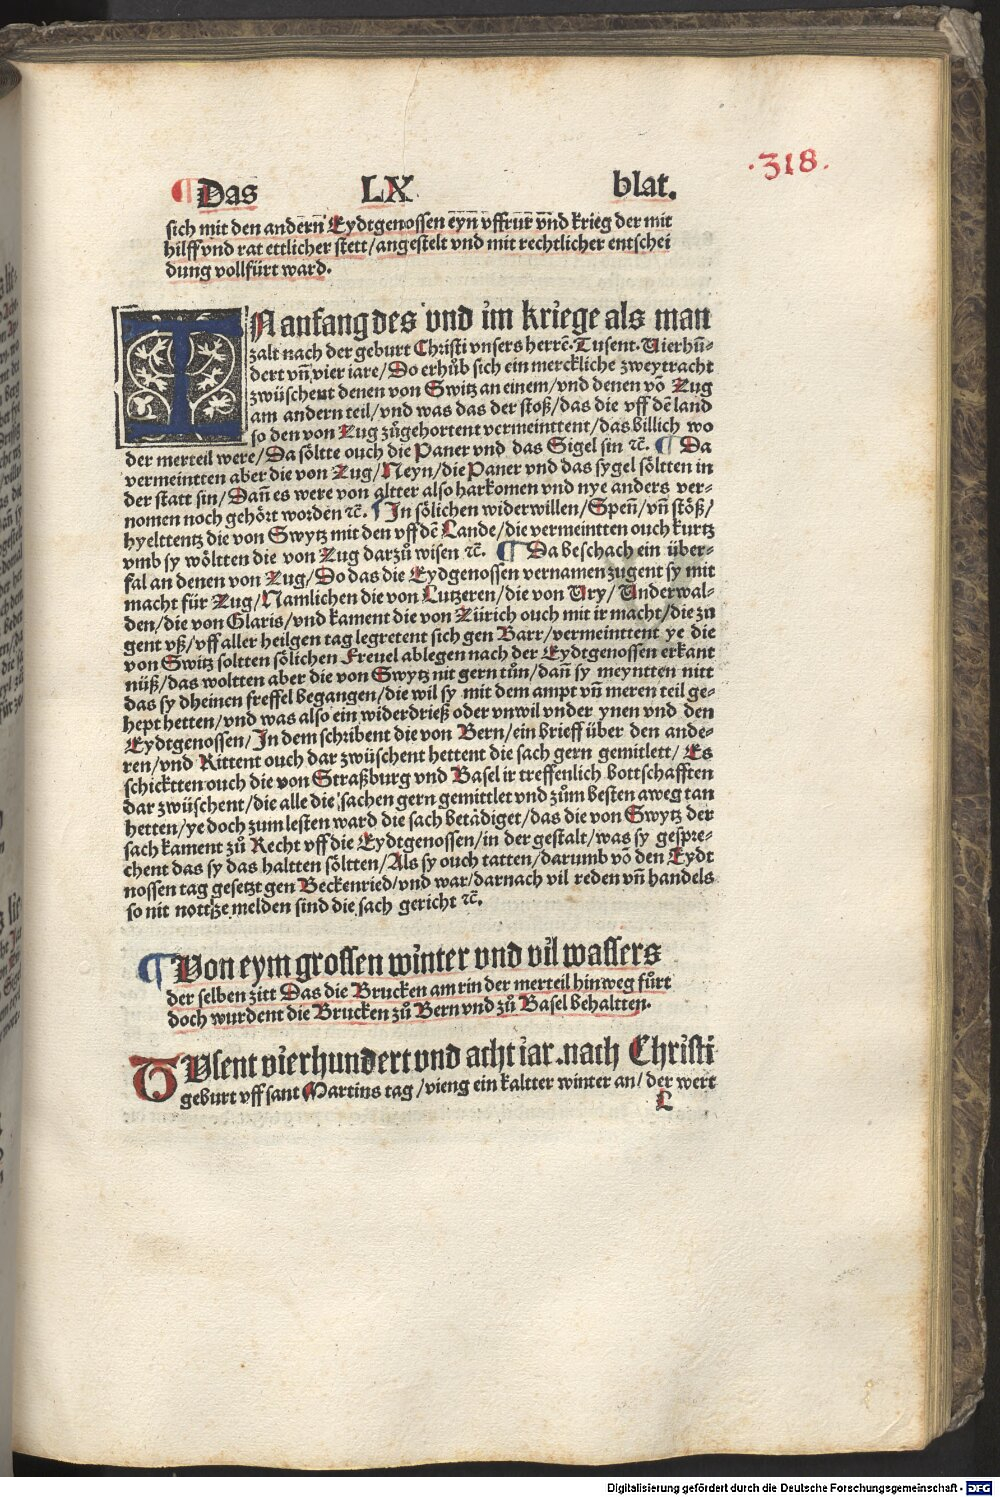 ·318·
¶ Das LX blat.
sich mit den andern̄ Eydtgenossen eȳn vffrur̄ vn̄d krieg der mit
hilff vnd rat ettlicher stett/angestelt vnd mit rechtlicher entschei
dung vollfürt ward.
IN anfang des vnd im kriege als man
zalt nach der geburt Christi vnsers herrē·Tusent·Vierhū-
dert vn̄ vier iare/Do erhůb sich ein merckliche zweytracht
zwüschent denen von Switz an einem/vnd denen vō Zug
am andern teil/vnd was das der stoß/das die vff dē land
so den von Zug zůgehortent vermeinttent/das billich wo
der merteil were/Da söltte ouch die Paner vnd das Sigel sin ⁊c̄. ¶ Da
vermeintten aber die von Zug/Neyn/die Paner vnd das sygel söltten in
der statt sin/Dan̄ es were von altter also harkomen vnd nye anders ver-
nomen noch gehört worden ⁊c̄. ¶ In sölichen widerwillen/Spen̄/vn̄ stöß/
hyelttentz die von Swytz mit den vff dē Lande/die vermeintten ouch kurtz
vmb sy wöltten die von Zug darzů wisen ⁊c̄. ¶ Da beschach ein über-
fal an denen von Zug/Do das die Eydgenossen vernamen zugent sy mit
macht für Zug/Namlichen die von Lutzeren/die von Vry/Vnderwal-
den/die von Glaris/vnd kament die von Zürich ouch mit ir macht/die zu
gent vß/vff aller heilgen tag legretent sich gen Barr/vermeinttent ye die
von Switz soltten sölichen Freuel ablegen nach der Eydtgenossen erkant
nüß/das woltten aber die von Swytz nit gern tůn/dan̄ sy meyntten nitt
das sy dheinen freffel begangen/die wil sy mit dem ampt vn̄ meren teil ge-
hept hetten/vnd was also ein widerdrieß oder vnwil vnder ynen vnd den
Eydtgenossen/In dem schribent die von Bern/ein brieff über den ande-
ren/vnd Rittent ouch dar zwüschent hettent die sach gern gemitlett/Es
schicktten ouch die von Straßburg vnd Basel ir treffenlich bottschafften
dar zwüschent/die alle die sachen gern gemittlet vnd zům besten aweg tan
hetten/ye doch zum lesten ward die sach betädiget/das die von Swytz der
sach kament zů Recht vff die Eydtgenossen/in der gestalt/was sy gespre-
chent das sy das haltten söltten/Als sy ouch tatten/darumb vō den Eydt
nossen tag gesetzt gen Beckenried/vnd war/darnach vil reden vn̄ handels
so nit nott ze melden sind die sach gericht ⁊c̄.
¶ Von eym grossen winter vnd vil wassers
der selben zitt Das die Brucken am rin der merteil hinweg fůrt
doch wurdent die Brucken zů Bern vnd zů Basel behaltten.
TVsent vierhundert vnd acht iar .nach Christi
geburt vff sant Martins tag/vieng ein kaltter winter an/der wert
L
Digitalisierung gefördert durch die Deutsche Forschungsgemeinschaft - DFG